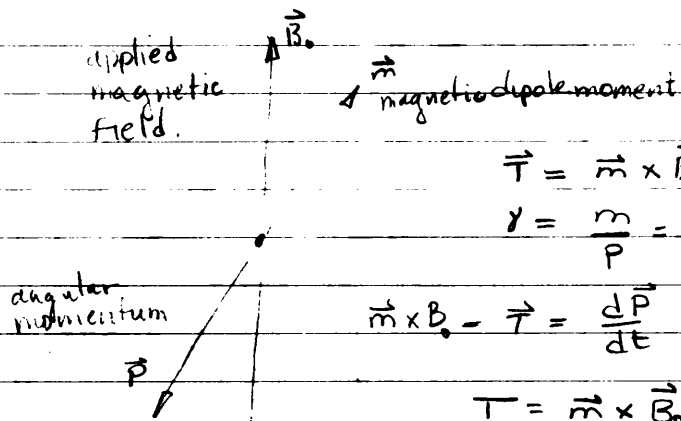 B⃗₀
applied
magnetic
field.
m⃗
magnetic dipole moment
T⃗ = m⃗ ×
γ = m/P =
angular
momentum
m⃗ × B₀ - T⃗ = dP⃗/dt
P⃗
T = m⃗ × B⃗₀